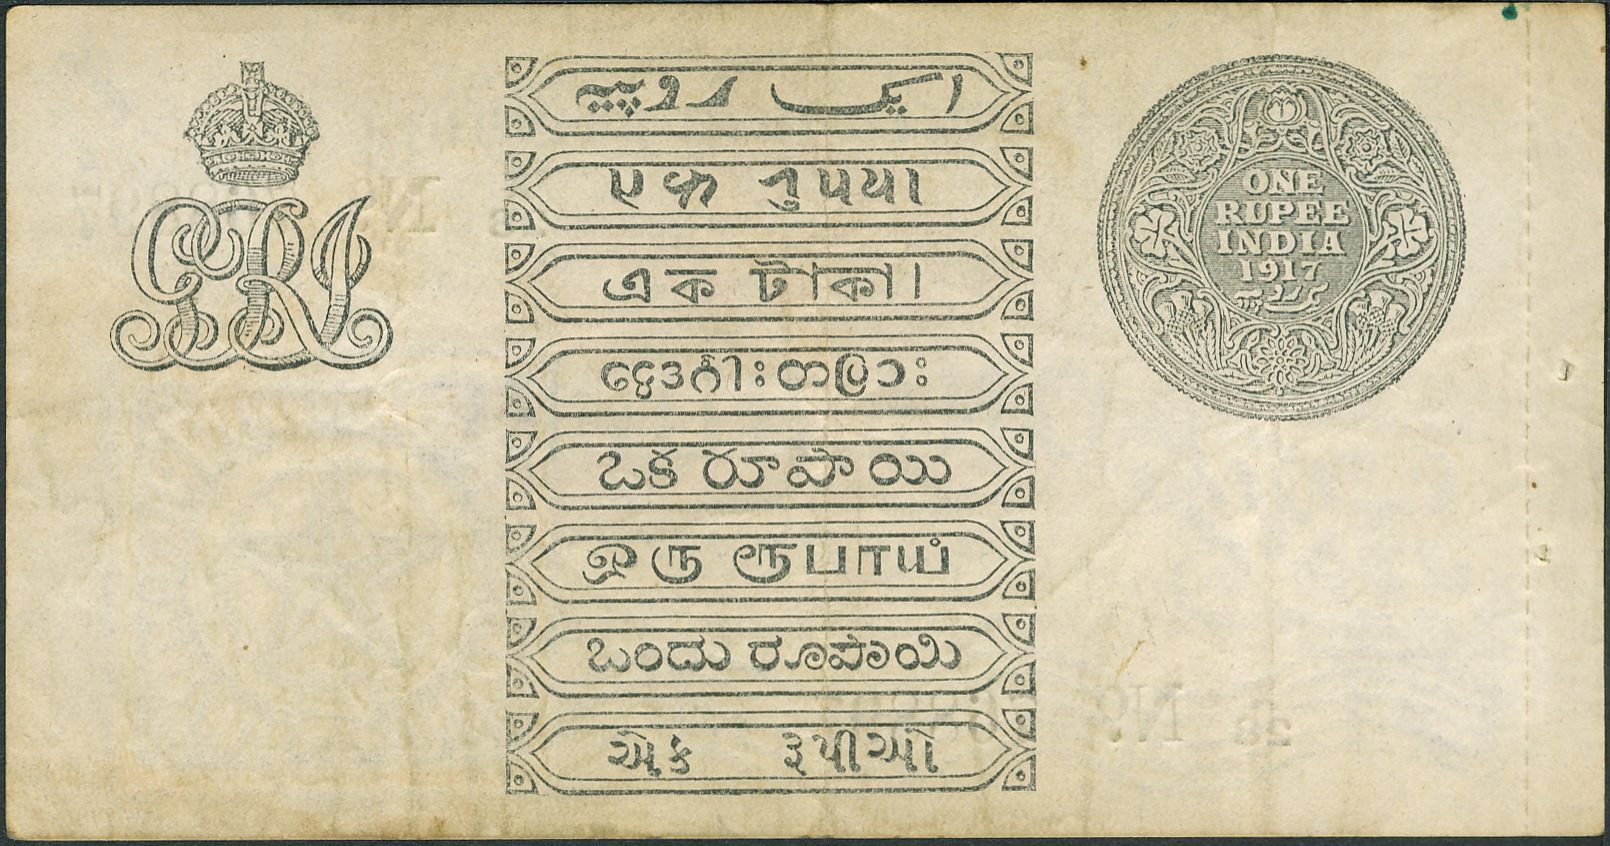 GRI
ایک روپیہ
एक रुपया
এক টাকা।
ဒင်္ဂါးတပြား
ఒక రూపాయి
ஒரு ரூபாய்
ಒಂದು ರೂಪಾಯಿ
એક રૂપીઓ
ONE
RUPEE
INDIA
1917